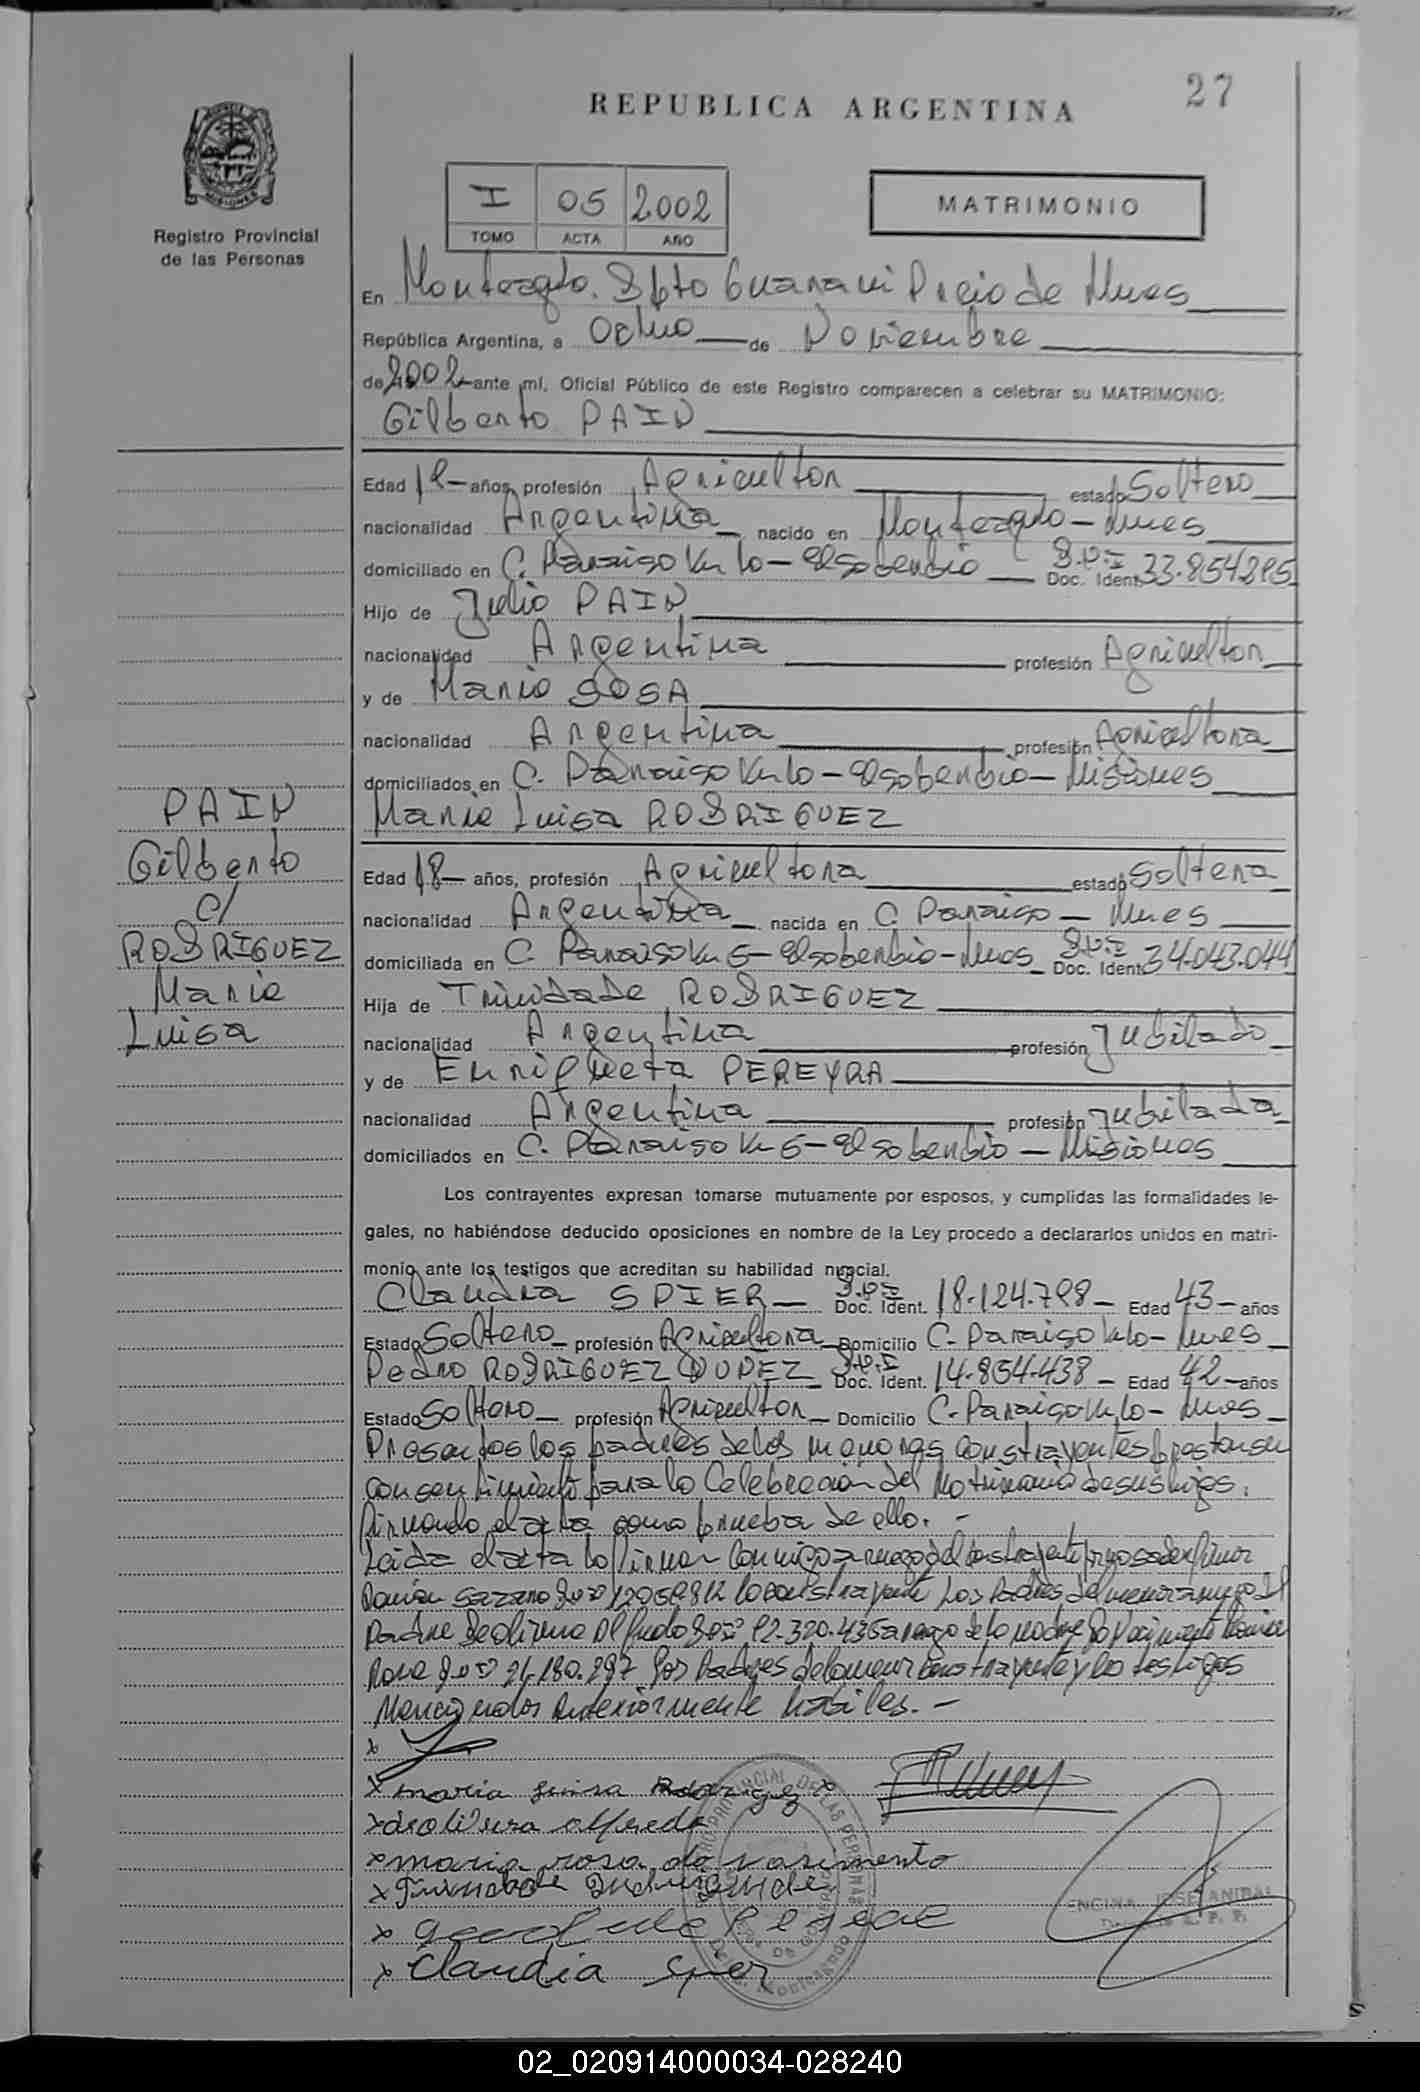 27
REPUBLICA ARGENTINA
MISIONES
Registro Provincial
de las Personas
I 05 2002
TOMO ACTA AÑO
MATRIMONIO
En Monteagdo. Dpto Guarani Pcia de Mnes
República Argentina, a Ocho de Noviembre
de 2002 ante mí, Oficial Público de este Registro comparecen a celebrar su MATRIMONIO:
Gilberto PAIN
Edad 18 años, profesión Agricultor estado Soltero
nacionalidad Argentina nacido en Monteagdo - Mnes
domiciliado en C. Paraiso Km 10 - El soberbio D.N.I Doc. Ident. 33.854.285
Hijo de Julio PAIN
nacionalidad Argentina profesión Agricultor
y de Maria SOSA
nacionalidad Argentina profesión Agricultora
domiciliados en C. Paraiso Km 10 - El soberbio - Misiones
Maria Luisa RODRIGUEZ
Edad 18 años, profesión Agricultora estado Soltera
nacionalidad Argentina nacida en C. Paraiso - Mnes
domiciliada en C. Paraiso Km 5 - El soberbio - Mnes D.N.I Doc. Ident. 34.043.044
Hija de Trinidade RODRIGUEZ
nacionalidad Argentina profesión Jubilado
y de Enriqueta PEREYRA
nacionalidad Argentina profesión Jubilada
domiciliados en C. Paraiso Km 5 - El soberbio - Misiones
PAIN
Gilberto
c/
RODRIGUEZ
Maria
Luisa
Los contrayentes expresan tomarse mutuamente por esposos, y cumplidas las formalidades le-
gales, no habiéndose deducido oposiciones en nombre de la Ley procedo a declararlos unidos en matri-
monio ante los testigos que acreditan su habilidad nupcial.
Claudia SPIER D.N.I Doc. Ident. 18.124.798 Edad 43 años
Estado Soltero profesión Agricultora Domicilio C. Paraiso Km 10 - Mnes
Pedro RODRIGUEZ NUNEZ D.N.I Doc. Ident. 14.854.438 Edad 42 años
Estado Soltero profesión Agricultor Domicilio C. Paraiso Km 10 - Mnes
Presentes los padres de los menores contrayentes prestan su
consentimiento para la Celebracion del Matrimonio de sus hijos,
firmando el acta como prueba de ello. -
Leida el acta la firman conmigo a ruego del contrayente por no saber firmar
la contrayente Los Padres del menor a ruego del
Padre De olivera Alfredo DNI 12.320.435 a ruego de la madre Do Nacimento Maria
Rosa DNI 21.180.297 los Padres de la menor contrayente y los testigos
Mencionados Anteriormente habiles. -
x
x maria luisa Rodriguez x
x de olivera alfredo
x maria rosa do nasimento
x
x
x Claudia Spier
ENCINA JOSE ANIBAL
02_020914000034-028240